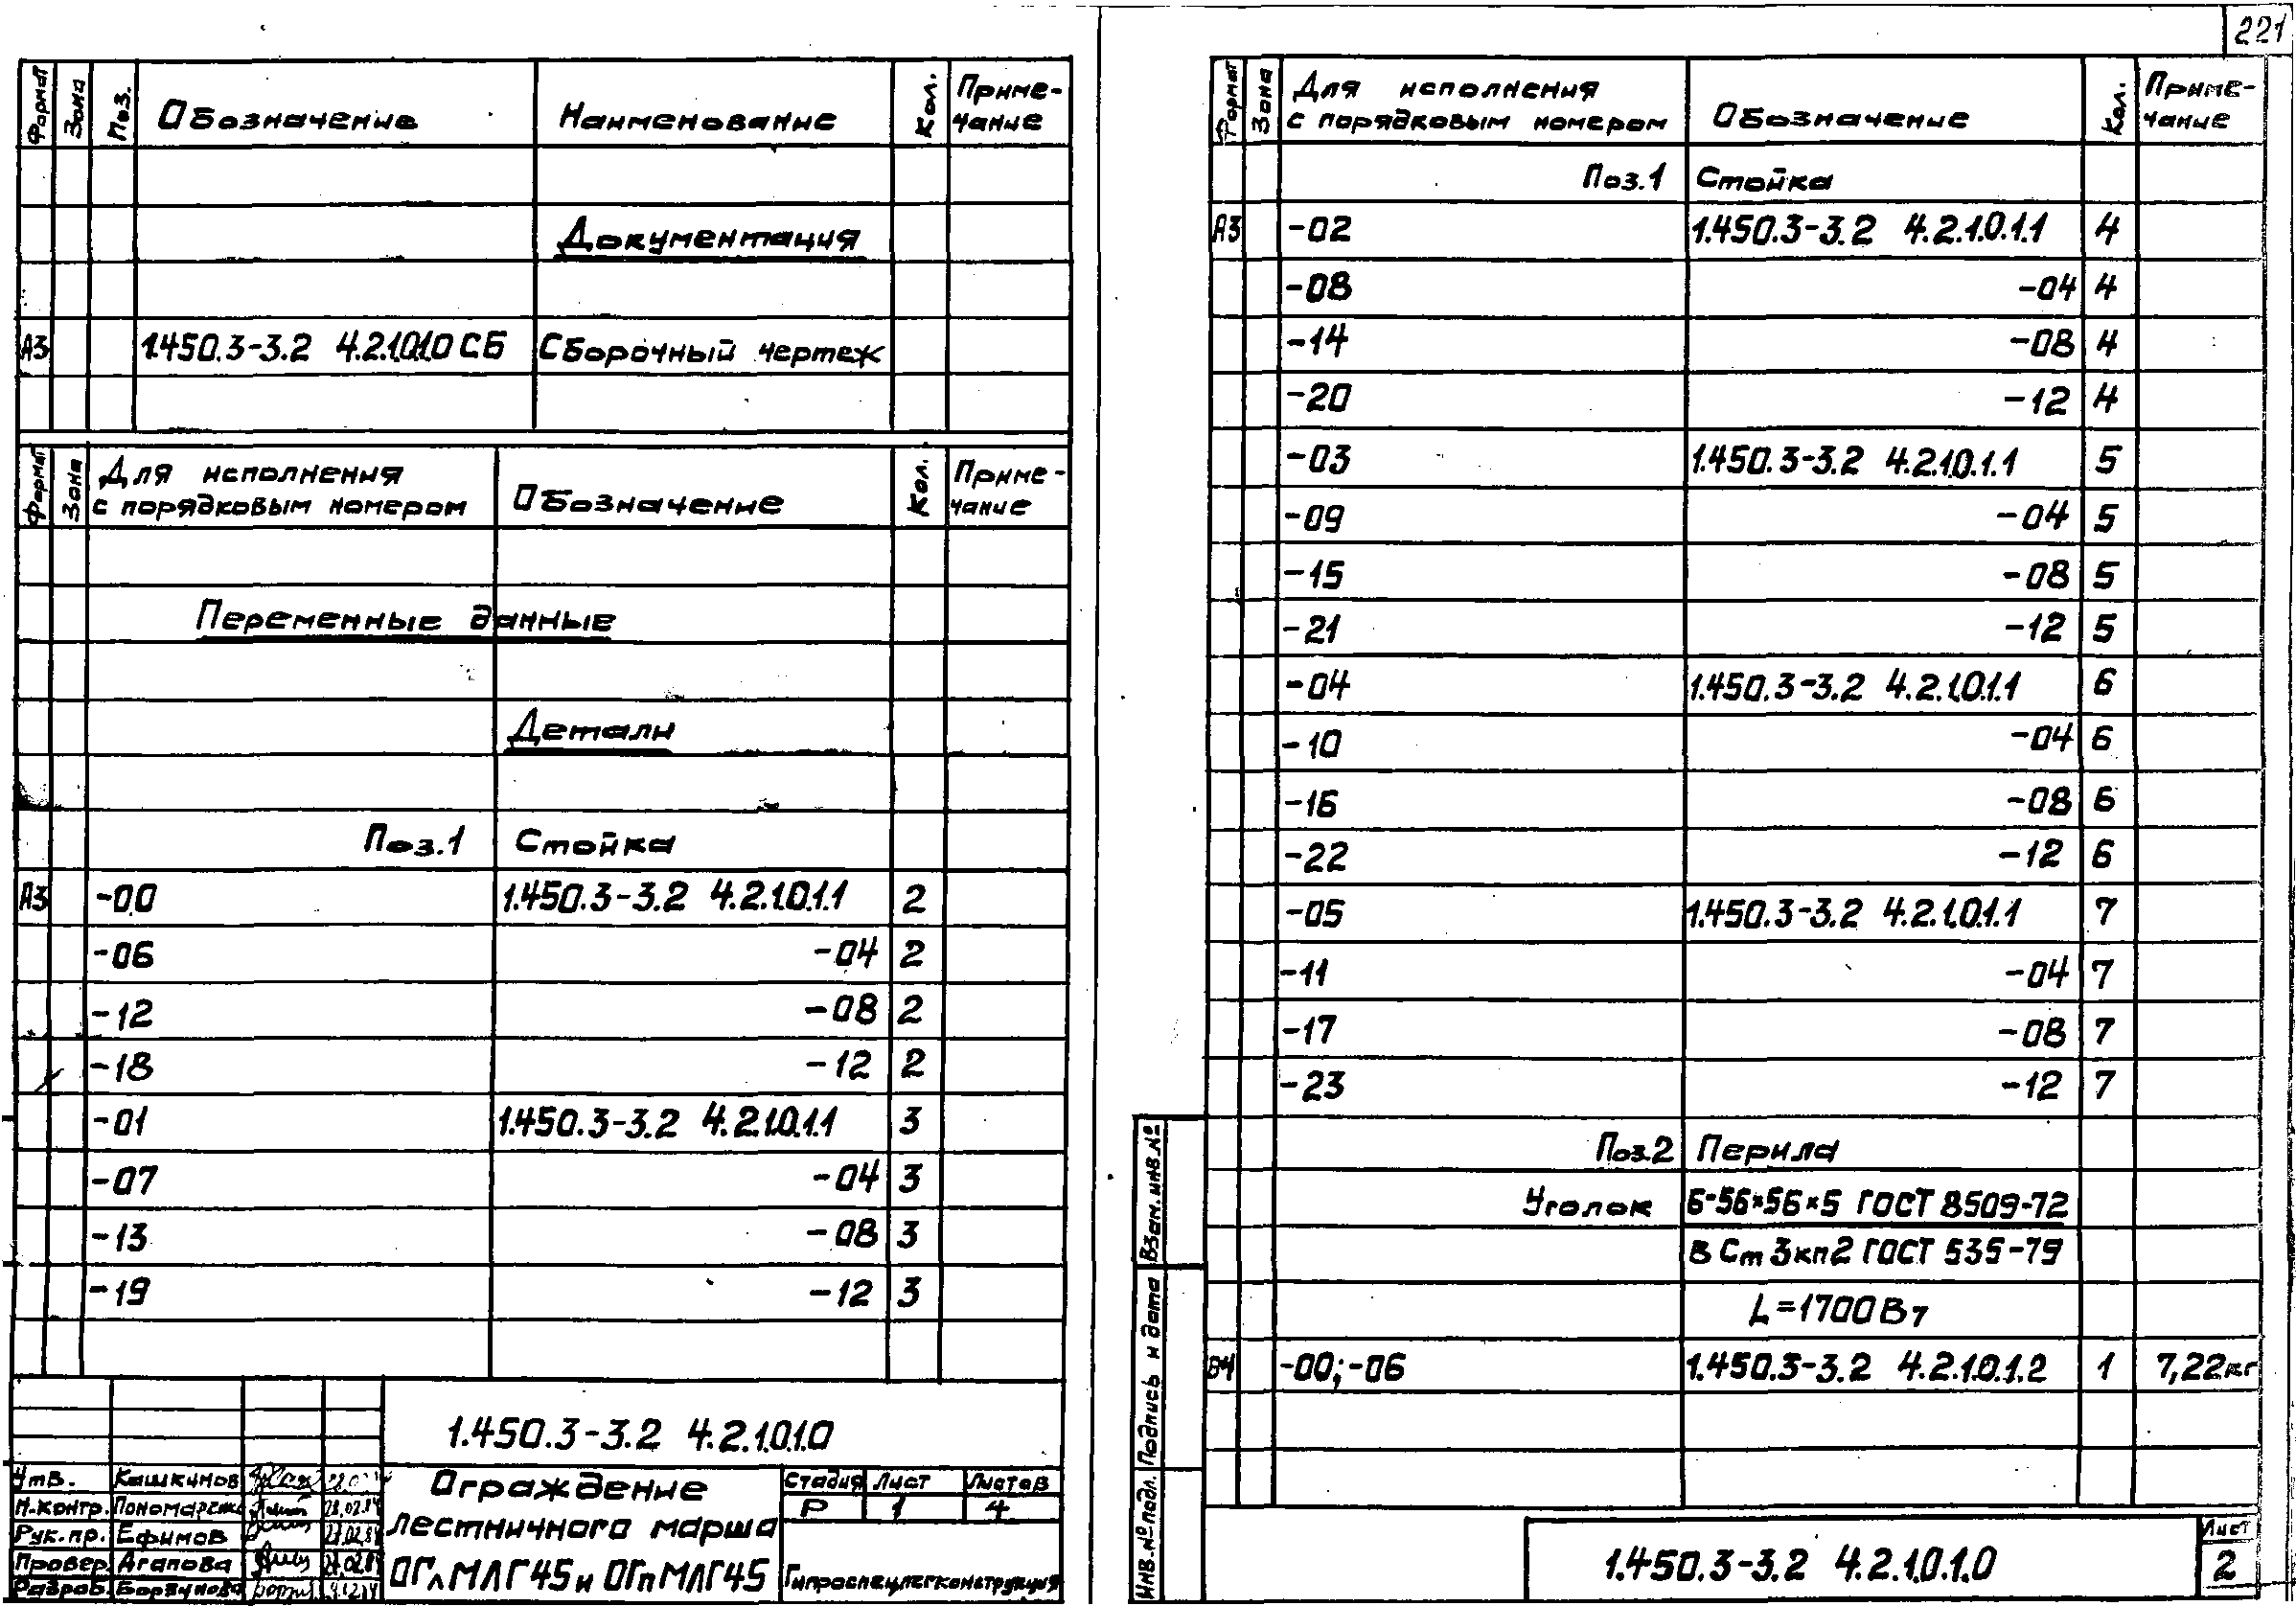 221
Формат Зона Поз. Обозначение Наименование Кол. Приме-
чание
Документация
А3 1.450.3-3.2 4.2.1.0.1.0 СБ Сборочный чертеж
Формат Зона Для исполнения
с порядковым номером Обозначение Кол. Приме-
чание
Переменные данные
Детали
Поз.1 Стойка
А3 -00 1.450.3-3.2 4.2.1.0.1.1 2
-06 -04 2
-12 -08 2
-18 -12 2
-01 1.450.3-3.2 4.2.1.0.1.1 3
-07 -04 3
-13 -08 3
-19 -12 3
1.450.3-3.2 4.2.1.0.1.0
Утв. Кашкинов
Н.контр. Пономаренко
Рук.пр. Ефимов
Провер. Агапова
Разраб.
Ограждение
лестничного марша
ОГлМЛГ45 и ОГпМЛГ45
Стадия Лист Листов
Р 1 4
Гипроспецлегконструкция
Формат Зона Для исполнения
с порядковым номером Обозначение Кол. Приме-
чание
Поз.1 Стойка
А3 -02 1.450.3-3.2 4.2.1.0.1.1 4
-08 -04 4
-14 -08 4
-20 -12 4
-03 1.450.3-3.2 4.2.1.0.1.1 5
-09 -04 5
-15 -08 5
-21 -12 5
-04 1.450.3-3.2 4.2.1.0.1.1 6
-10 -04 6
-16 -08 6
-22 -12 6
-05 1.450.3-3.2 4.2.1.0.1.1 7
-11 -04 7
-17 -08 7
-23 -12 7
Поз.2 Перила
Уголок Б-56×56×5 ГОСТ 8509-72
В Ст 3кп2 ГОСТ 535-79
L=1700
-00;-06 1.450.3-3.2 4.2.1.0.1.2 1 7,22кг
Взам.инв.№
Подпись и дата
Инв.№подл.
1.450.3-3.2 4.2.1.0.1.0
Лист
2